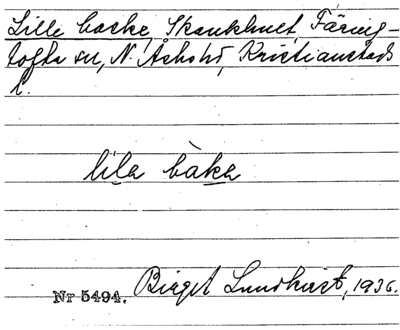 Lille backe, Skånkhult, Färing-
tofta sn, N. Åsbohd, Kristianstads
l.
lila bàka
Nr 5494. Birgit Lundkvist, 1936.